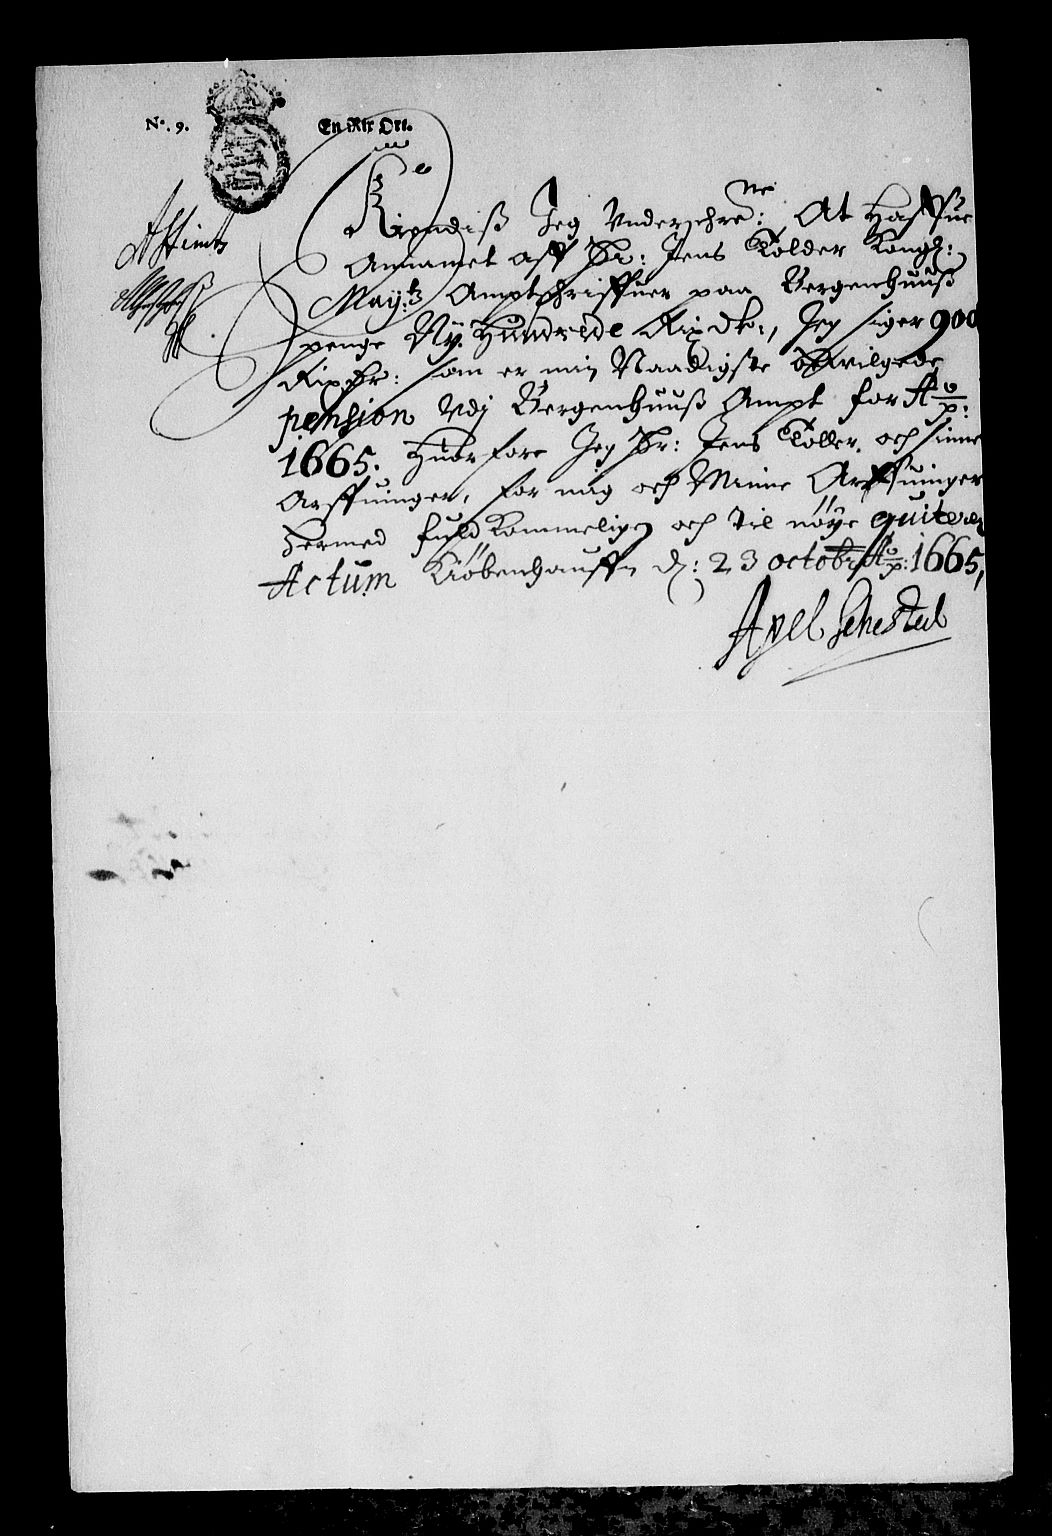 No. 9. En Rir Ort.
Kiendiß Jeg Underschreͤne: At Haffue
Annamet aff Hr: Jens Tolder Kongl:
May:tz Amptschriffuer paa Bergenhuuß
penge Ny Hundrede Rixdlr:, Jeg siger 900
Rixdr: som er min Naadigste bewilgede
pension Udj Bergenhuuß Ampt for Ao:
1665. Huorfore Jeg Hr: Jens Toller och sinne
Arffuinger, for mig och Minne Arffuinger
hermed fuldkommeligen och til nöye quiterer
Actum Kiöbenhauffn d: 23 octobr Ao: 1665,
Axel Sehested